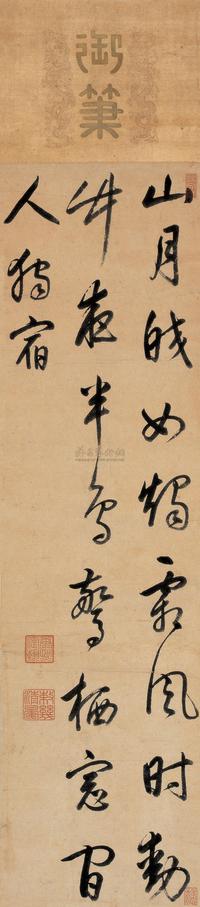 御筆
山月皎如燭霜風时動
竹夜半鸟驚栖窓间
人獨宿